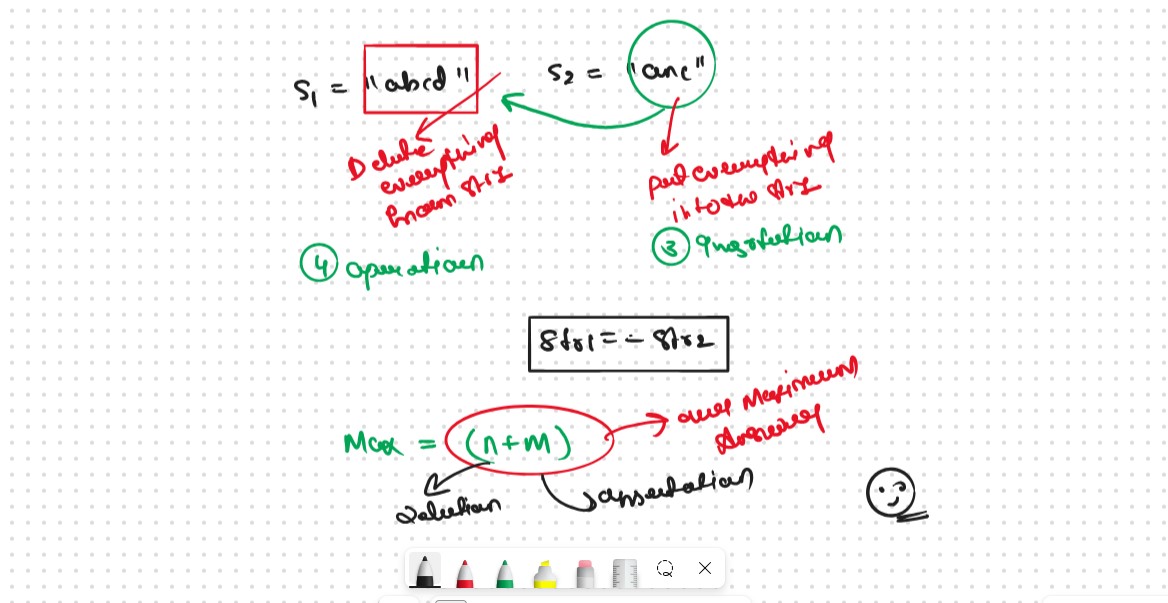 S1 = "abcd"
S2 = "anc"
Delete
everything
from str1
put everything
into the str1
4 operation
3 Insertion
Str1 == Str2
Max = (n+m)
our Maximum
Answer
Deletion